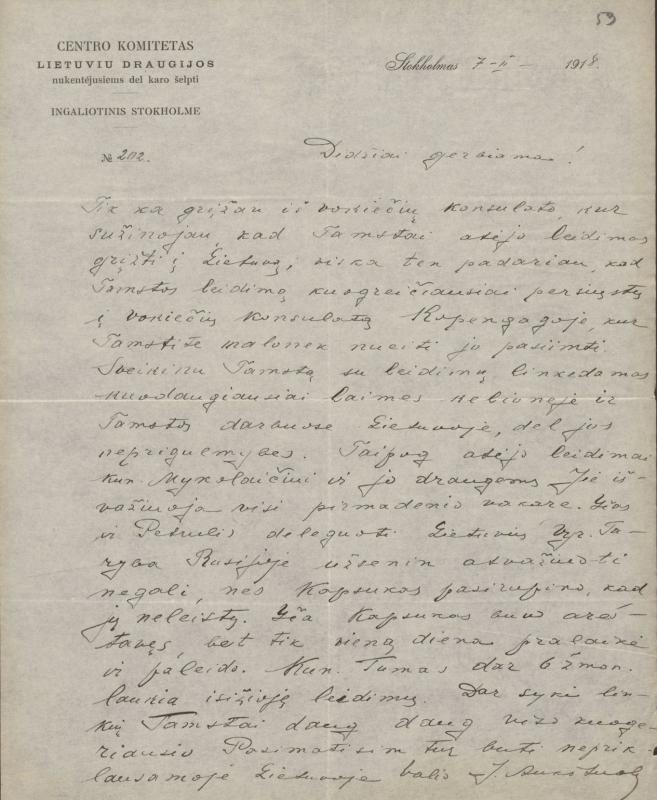 59
CENTRO KOMITETAS
LIETUVIU DRAUGIJOS
nukentėjusiems del karo šelpti
INGALIOTINIS STOKHOLME
Stokholmas 7-II- 1918.
№ 202.
Didžiai gerbiamas!
Tik ka grįžau iš vokiečių konsulato, kur
sužinojau, kad Tamstai atėjo leidimas
grįžti į Lietuvą; viska ten padariau, kad
Tamstos leidimą kuogreičiausiai persiųstų
į vokiečių konsulatą Kopengagoje, kur
malonek nueiti jo pasiimti.
Sveikinu Tamstą su leidimu, linkėdamas
kuodaugiausiai laimes kelionėje ir
Tamstos darbuose Lietuvoje, del jos
neprigulmybes. Taipog atėjo leidimai
kun. Mykolaičiui ir jo draugems. Jie iš-
važiuoja visi pirmadenio vakare.
ir Petrulis deleguoti Lietuvių Vyr. Ta-
ryba Rusijoje užsenin atvažiuoti
negali, nes Kapsukas pasirupino, kad
jų neleistų. Kapsukas buvo areš-
tavęs, bet tik vieną diena pralaikė
ir paleido. Kun. Tumas dar 6 žmon.
laukia leidimų. Dar sykį lin-
kių Tamstai daug daug viso kuoge-
riausio Pasimatisim buti neprik-
lausamoje Lietuvoje